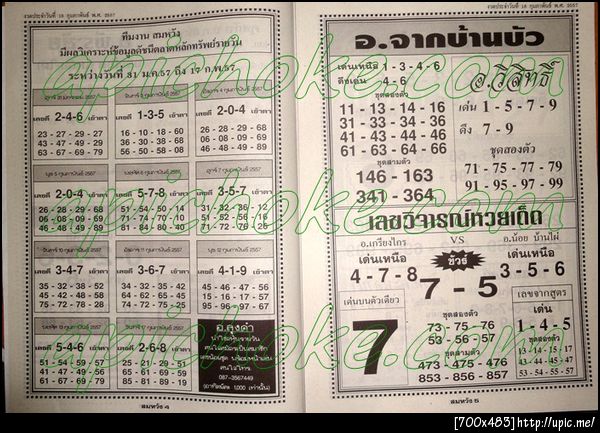 งวดประจำวันที่ 16 กุมภาพันธ์ พ.ศ. 2557
ทีมงาน สมหวัง
มีผลวิเคราะห์ข้อมูลดัชนีตลาดหลักทรัพย์รายวัน
ระหว่างวันที่ 31 ม.ค.57 ถึง 17 ก.พ.57
เลขดี 2-4-6 เข้าตา
23 - 27 - 29 - 27
43 - 47 - 49 - 26
63 - 67 - 69 - 79
เลขดี 1-3-5 เข้าตา
16 - 10 - 18 - 60
36 - 30 - 38 - 68
56 - 50 - 58 - 80
เลขดี 2-0-4 เข้าตา
26 - 28 - 29 - 68
06 - 08 - 09 - 69
46 - 48 - 49 - 89
พุธ 5 กุมภาพันธ์ 2557
เลขดี 2-0-4 เข้าตา
26 - 28 - 29 - 68
06 - 08 - 09 - 69
46 - 48 - 49 - 89
เลขดี 5-7-8 เข้าตา
51 - 54 - 50 - 14
71 - 74 - 70 - 10
81 - 84 - 80 - 40
ศุกร์ 7 กุมภาพันธ์ 2557
เลขดี 3-5-7 เข้าตา
31 - 32 - 36 - 12
51 - 52 - 56 - 16
71 - 72 - 76 - 26
จันทร์ 10 กุมภาพันธ์ 2557
เลขดี 3-4-7 เข้าตา
35 - 32 - 38 - 52
45 - 42 - 48 - 58
75 - 72 - 78 - 28
อังคาร 11 กุมภาพันธ์ 2557
เลขดี 3-6-7 เข้าตา
31 - 34 - 35 - 14
61 - 64 - 65 - 15
71 - 74 - 75 - 45
พุธ 12 กุมภาพันธ์ 2557
เลขดี 4-1-9 เข้าตา
45 - 46 - 47 - 56
15 - 16 - 17 - 57
95 - 96 - 97 - 67
เลขดี 5-4-6 เข้าตา
51 - 54 - 59 - 57
41 - 44 - 49 - 47
61 - 64 - 69 - 67
เลขดี 2-6-8 เข้าตา
21 - 25 - 27 - 15
61 - 65 - 67 - 17
81 - 85 - 87 - 57
087-3567449
สมหวัง 4
งวดประจำวันที่ 16 กุมภาพันธ์ พ.ศ. 2557
อ.จากบ้านบัว
เด่นเหนือ 1 - 3 - 4 - 6
ดึงเด่น 4 - 6
ชุดสองตัว
11 - 13 - 14 - 16
31 - 33 - 34 - 36
41 - 43 - 44 - 46
61 - 63 - 64 - 66
ชุดสามตัว
146 - 163
341 - 364
อ.วิสิทธิ์
เด่น 1 - 5 - 7 - 9
ดึง 7 - 9
ชุดสองตัว
71 - 75 - 77 - 79
91 - 95 - 97 - 99
เลขวิจารณ์หวยเด็ด
อ.เกรียงไกร VS อ.น้อย บ้านไผ่
เด่นเหนือ
4 - 7 - 8
ชัวร์
7 - 5
เด่นเหนือ
3 - 5 - 6
เด่นบนตัวเดียว
7
ชุดสองตัว
73 - 75 - 76
53 - 56 - 57
ชุดสามตัว
473 - 475 - 476
853 - 856 - 857
เลขจากสูตร
เด่น
1 - 4 - 5
ชุดสองตัว
13 - 14 - 15 - 17
43 - 44 - 45 - 47
53 - 54 - 55 - 57
สมหวัง 5
apichoke.com
[700x483]http://upic.me/